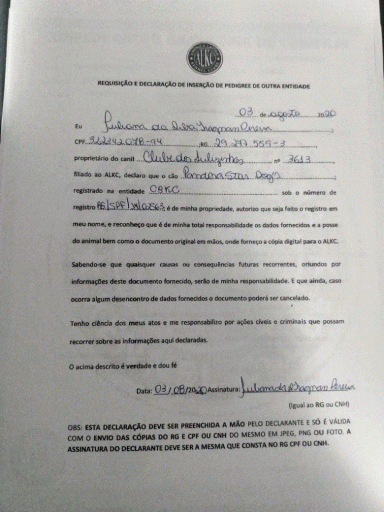 ALKC
REQUISIÇÃO E DECLARAÇÃO DE INSERÇÃO DE PEDIGREE DE OUTRA ENTIDADE
03 de agosto 2020
Eu Juliana da Silva Pereira
CPF RG 29.297.559-3
proprietário do canil Clube dos Lulyzinhos nº 3613
filiado ao ALKC, declaro que o cão Pandora Star Dog's
registrado na entidade CBKC sob o número de
registro é de minha propriedade, autorizo que seja feito o registro em
meu nome, e reconheço que é de minha total responsabilidade os dados fornecidos e a posse
do animal bem como o documento original em mãos, onde forneço a cópia digital para o ALKC.
Sabendo-se que quaisquer causas ou consequências futuras recorrentes, oriundos por
informações deste documento fornecido, serão de minha responsabilidade. E que ainda, caso
ocorra algum desencontro de dados fornecidos o documento poderá ser cancelado.
Tenho ciência dos meus atos e me responsabilizo por ações cíveis e criminais que possam
recorrer sobre as informações aqui declaradas.
O acima descrito é verdade e dou fé
Data: 03/08/2020 Assinatura: Juliana da Pereira
(Igual ao RG ou CNH)
OBS: ESTA DECLARAÇÃO DEVE SER PREENCHIDA A MÃO PELO DECLARANTE E SÓ É VÁLIDA
COM O ENVIO DAS CÓPIAS DO RG E CPF OU CNH DO MESMO EM JPEG, PNG OU FOTO. A
ASSINATURA DO DECLARANTE DEVE SER A MESMA QUE CONSTA NO RG CPF OU CNH.